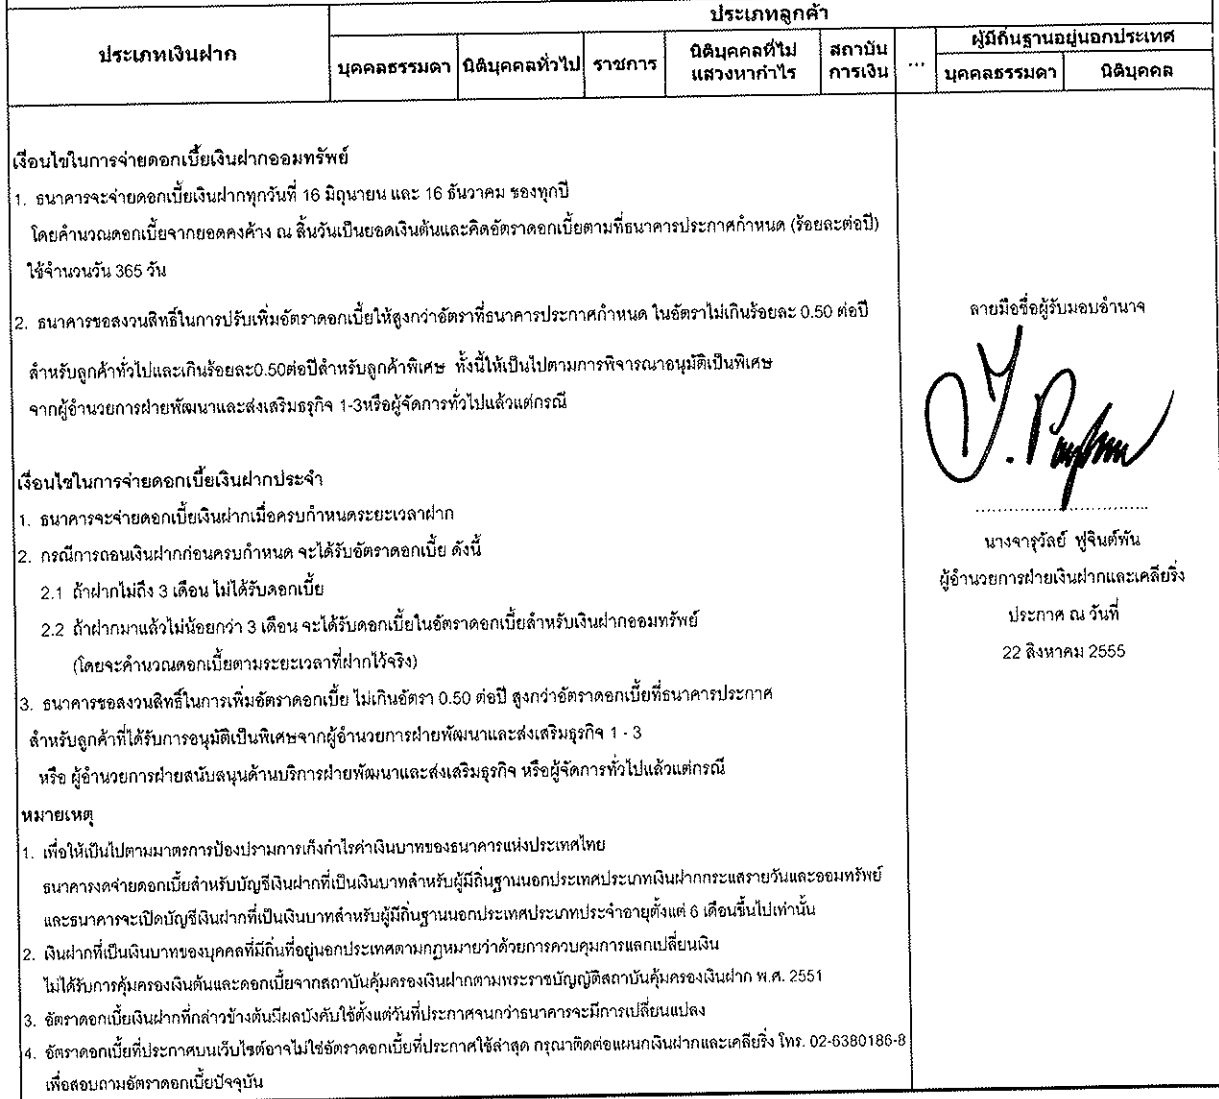 ประเภทลูกค้า
ประเภทเงินฝาก
บุคคลธรรมดา
นิติบุคคลทั่วไป
ราชการ
นิติบุคคลที่ไม่
แสวงหากำไร
สถาบัน
การเงิน
...
ผู้มีถิ่นฐานอยู่นอกประเทศ
บุคคลธรรมดา
นิติบุคคล
เงื่อนไขในการจ่ายดอกเบี้ยเงินฝากออมทรัพย์
1. ธนาคารจะจ่ายดอกเบี้ยเงินฝากทุกวันที่ 16 มิถุนายน และ 16 ธันวาคม ของทุกปี
โดยคำนวณดอกเบี้ยจากยอดคงค้าง ณ สิ้นวันเป็นยอดเงินต้นและคิดอัตราดอกเบี้ยตามที่ธนาคารประกาศกำหนด (ร้อยละต่อปี)
ใช้จำนวนวัน 365 วัน
2. ธนาคารขอสงวนสิทธิ์ในการปรับเพิ่มอัตราดอกเบี้ยให้สูงกว่าอัตราที่ธนาคารประกาศกำหนด ในอัตราไม่เกินร้อยละ 0.50 ต่อปี
สำหรับลูกค้าทั่วไปและเกินร้อยละ0.50ต่อปีสำหรับลูกค้าพิเศษ ทั้งนี้ให้เป็นไปตามการพิจารณาอนุมัติเป็นพิเศษ
จากผู้อำนวยการฝ่ายพัฒนาและส่งเสริมธรุกิจ 1-3หรือผู้จัดการทั่วไปแล้วแต่กรณี
เงื่อนไขในการจ่ายดอกเบี้ยเงินฝากประจำ
1. ธนาคารจะจ่ายดอกเบี้ยเงินฝากเมื่อครบกำหนดระยะเวลาฝาก
2. กรณีการถอนเงินฝากก่อนครบกำหนด จะได้รับอัตราดอกเบี้ย ดังนี้
2.1 ถ้าฝากไม่ถึง 3 เดือน ไม่ได้รับดอกเบี้ย
2.2 ถ้าฝากมาแล้วไม่น้อยกว่า 3 เดือน จะได้รับดอกเบี้ยในอัตราดอกเบี้ยสำหรับเงินฝากออมทรัพย์
(โดยจะคำนวณดอกเบี้ยตามระยะเวลาที่ฝากไว้จริง)
3. ธนาคารขอสงวนสิทธิ์ในการเพิ่มอัตราดอกเบี้ย ไม่เกินอัตรา 0.50 ต่อปี สูงกว่าอัตราดอกเบี้ยที่ธนาคารประกาศ
สำหรับลูกค้าที่ได้รับการอนุมัติเป็นพิเศษจากผู้อำนวยการฝ่ายพัฒนาและส่งเสริมธุรกิจ 1 - 3
หรือ ผู้อำนวยการฝ่ายสนับสนุนด้านบริการฝ่ายพัฒนาและส่งเสริมธุรกิจ หรือผู้จัดการทั่วไปแล้วแต่กรณี
หมายเหตุ
1. เพื่อให้เป็นไปตามมาตรการป้องปรามการเก็งกำไรค่าเงินบาทของธนาคารแห่งประเทศไทย
ธนาคารงดจ่ายดอกเบี้ยสำหรับบัญชีเงินฝากที่เป็นเงินบาทสำหรับผู้มีถิ่นฐานนอกประเทศประเภทเงินฝากกระแสรายวันและออมทรัพย์
และธนาคารจะเปิดบัญชีเงินฝากที่เป็นเงินบาทสำหรับผู้มีถิ่นฐานนอกประเทศประเภทประจำอายุตั้งแต่ 6 เดือนขึ้นไปเท่านั้น
2. เงินฝากที่เป็นเงินบาทของบุคคลที่มีถิ่นที่อยู่นอกประเทศตามกฎหมายว่าด้วยการควบคุมการแลกเปลี่ยนเงิน
ไม่ได้รับการคุ้มครองเงินต้นและดอกเบี้ยจากสถาบันคุ้มครองเงินฝากตามพระราชบัญญัติสถาบันคุ้มครองเงินฝาก พ.ศ. 2551
3. อัตราดอกเบี้ยเงินฝากที่กล่าวข้างต้นมีผลบังคับใช้ตั้งแต่วันที่ประกาศจนกว่าธนาคารจะมีการเปลี่ยนแปลง
4. อัตราดอกเบี้ยที่ประกาศบนเว็บไซต์อาจไม่ใช่อัตราดอกเบี้ยที่ประกาศใช้ล่าสุด กรุณาติดต่อแผนกเงินฝากและเคลียริ่ง โทร. 02-6380186-8
เพื่อสอบถามอัตราดอกเบี้ยปัจจุบัน
ลายมือชื่อผู้รับมอบอำนาจ
นางจารุวัลย์ ฟูจินต์พัน
ผู้อำนวยการฝ่ายเงินฝากและเคลียริ่ง
ประกาศ ณ วันที่
22 สิงหาคม 2555